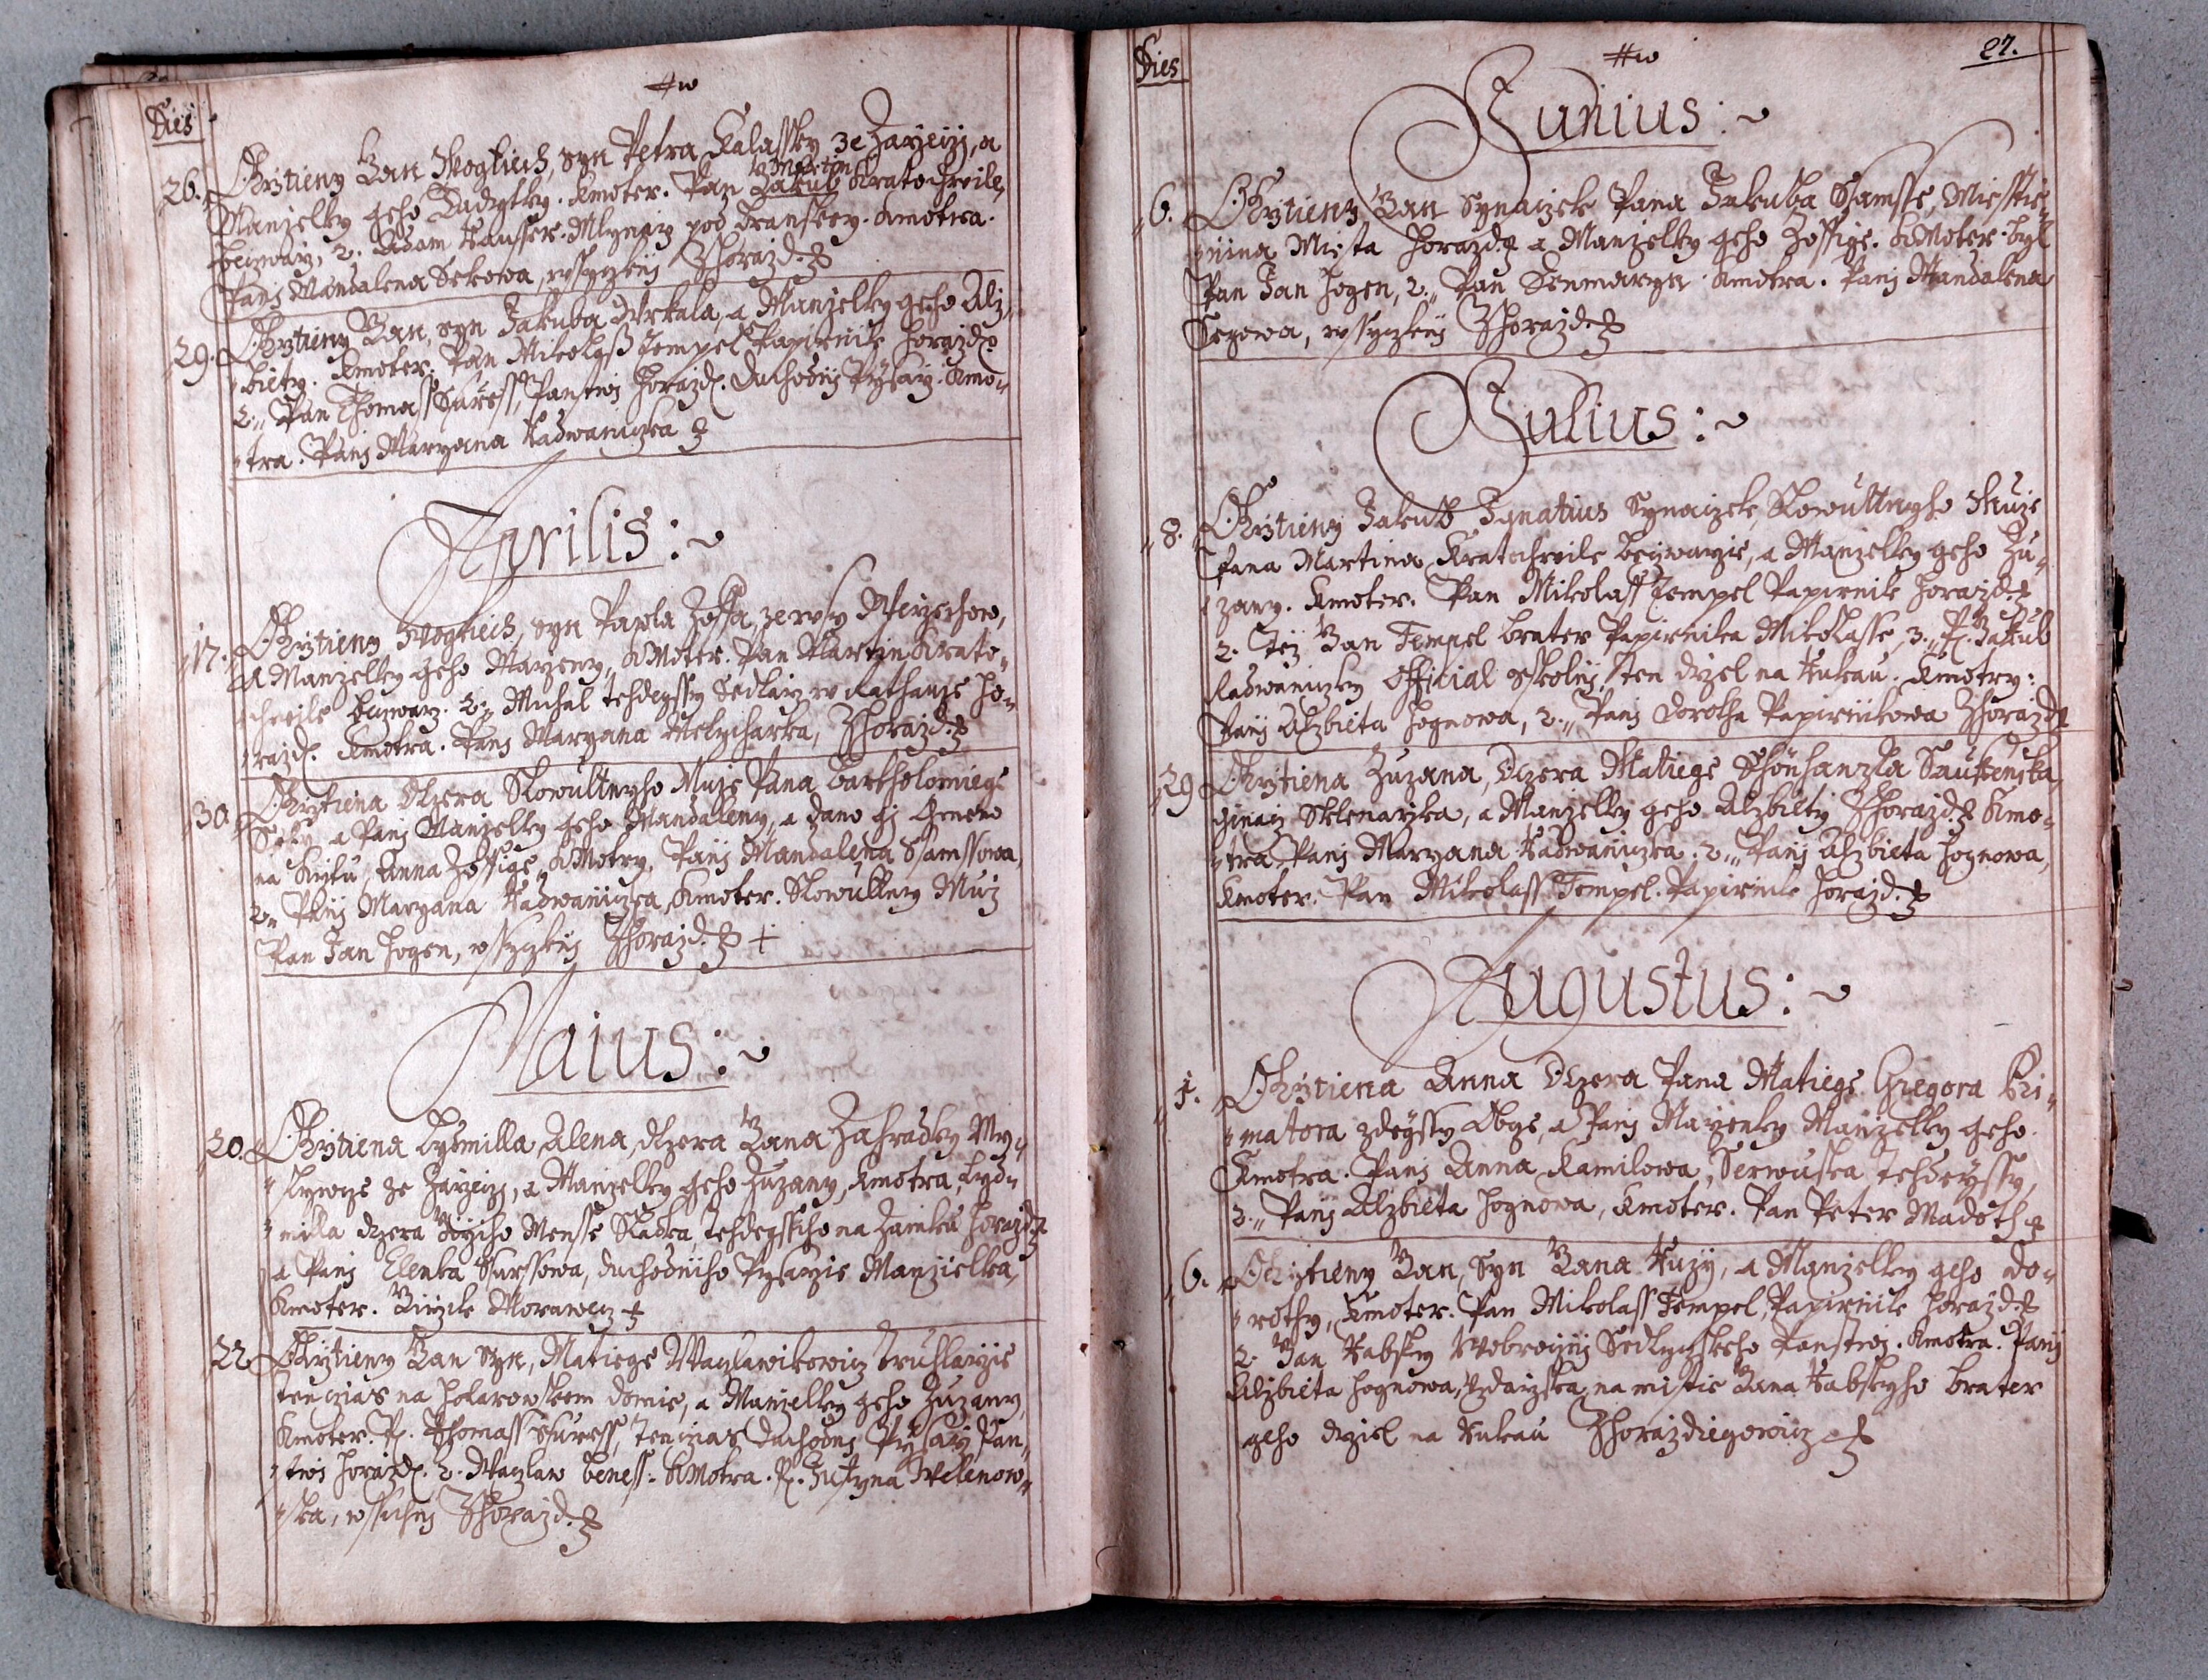 Dies
26. Chrztieny Jan Wogtiech, syn Petra Kalassky ze Zarzeczj, a
Manzelky geho Ludmilky. Kmoter. Pan Martin Jakub Kratochwile,
2. Adam Hausser. Mlynarz pod Branskey. Kmotra.
Panj Mandalena Sekowa, wssyczknj Zhorazd.
29. Chrztieny Jan, syn Jakuba Wrkala, a Manzelky geho Alz,
biety. Kmoter. Pan Mikolass Tempel Papirnik Horazd.
2. Pan Thomass Skuress, Panstwj Horazd. Duchodnj Pysarz. Kmo,,
tra. Panj Maryana Hadwaniczka
Aprilis:
17. Chrztieny Wogtiech, syn Pawla Zossa, ze wsy
a Manzelky geho Maryeny, Kmoter. Pan Martin Krato,,
chwile 2. Michal tehdegssy Sedlarz w Ho,,
razd. Kmotra. Panj Maryana Zhorazd.
30. Chrztiena Dczera Slowutneho Muze Pana Bartholomiege
Seky a Panj Manzelky geho Mandaleny, a dano gj Gmeno
na Krztu Anna Zoffige, Kmotry. Panj Mandalena Ssamssowa,
2. Panj Maryana Hadwaniczka, Kmoter. Slowutny Muz
Pan Jan Hogen, wssyczknj Zhorazd. +
Maius:
20. Chrztiena Lydmilla Alena, dczera Jana Zahradky My,,
slywcze ze Zarzeczj, a Manzelky geho Zuzany, Kmotra, Lyd,,
milla dczera Mensse Sladka, tehdegssiho na Zamku Horazd.
a Panj Elenka Skurssowa, duchodniho Pysarze Manzielka,
Kmoter. Morawecz
22. Chrztieny Jan syn, Matiege Waczlawikowicz Truhlarzie
tenczias na Holarowskem domie, a Manzelky geho Zuzany,
Kmoter. P. Thomass Skuress, tenczias Duchodnj Pysarz Pan,,
stwj Horazd. 2. Waczlaw Beness. Kmotra. P. Justyna Welenow,,
ska, wssichnj Zhorazd.
Dies
27.
Junius:
6. Chrztieny Jan Synaczek Pana Jakuba Ssamsse, Miesstie,,
nina Miesta Horazd. a Manzelky geho Zoffige. Kmoter byl
Pan Jan Hogen, 2. Pan Kmotra. Panj Mandalena
Segowa, wssyczknj Zhorazd.
Julius:
8. Chrztieny Jakub Ignatius Synaczek, Slowuttnyho Muze
Pana Martina Kratochwile a Manzelky geho Zu,,
zany. Kmoter. Pan Mikolass Tempel Papirnik Horazd.
2. Tez Jan Tempel bratr Papirnika Mikolasse, 3. P. Jakub
Radwaniczky Official Skolnj, ten drzel na Rukau. Kmotry:
Panj Alzbieta Hognowa, 2. Panj Dorotha Papirnikowa Zhorazd.
29 Chrztiena Zuzana, Dczera Matiege Schönhanzla
ginacz Sklenarzka, a Manzelky geho Alzbiety Zhorazd. Kmo,,
tra Panj Maryana Radwaniczka. 2. Panj Alzbieta Hognowa,
Kmoter. Pan Mikolass Tempel. Papirnik Horazd.
Augustus:
1. Chrztiena Anna Dczera Pana Matiege Gregora Pri,,
matora zdegssy Obcze, a Panj Marzenky Manzelky geho.
Kmotra. Panj Anna Kamilowa, tehdeyssy,
2. Panj Alzbieta Hognowa, Kmoter. Pan Peter Madoth
6. Chrztieny Jan, Syn Jana a Manzelky geho Do,,
rothy, Kmoter. Pan Mikolass Tempel, Papirnik Horazd.
2. Jan Habsky Panstwj. Kmotra. Panj
Alzbieta Hognowa, na mistie Jana Habskyho bratr
geho drziel na Rukau Zhorazdiegowicz